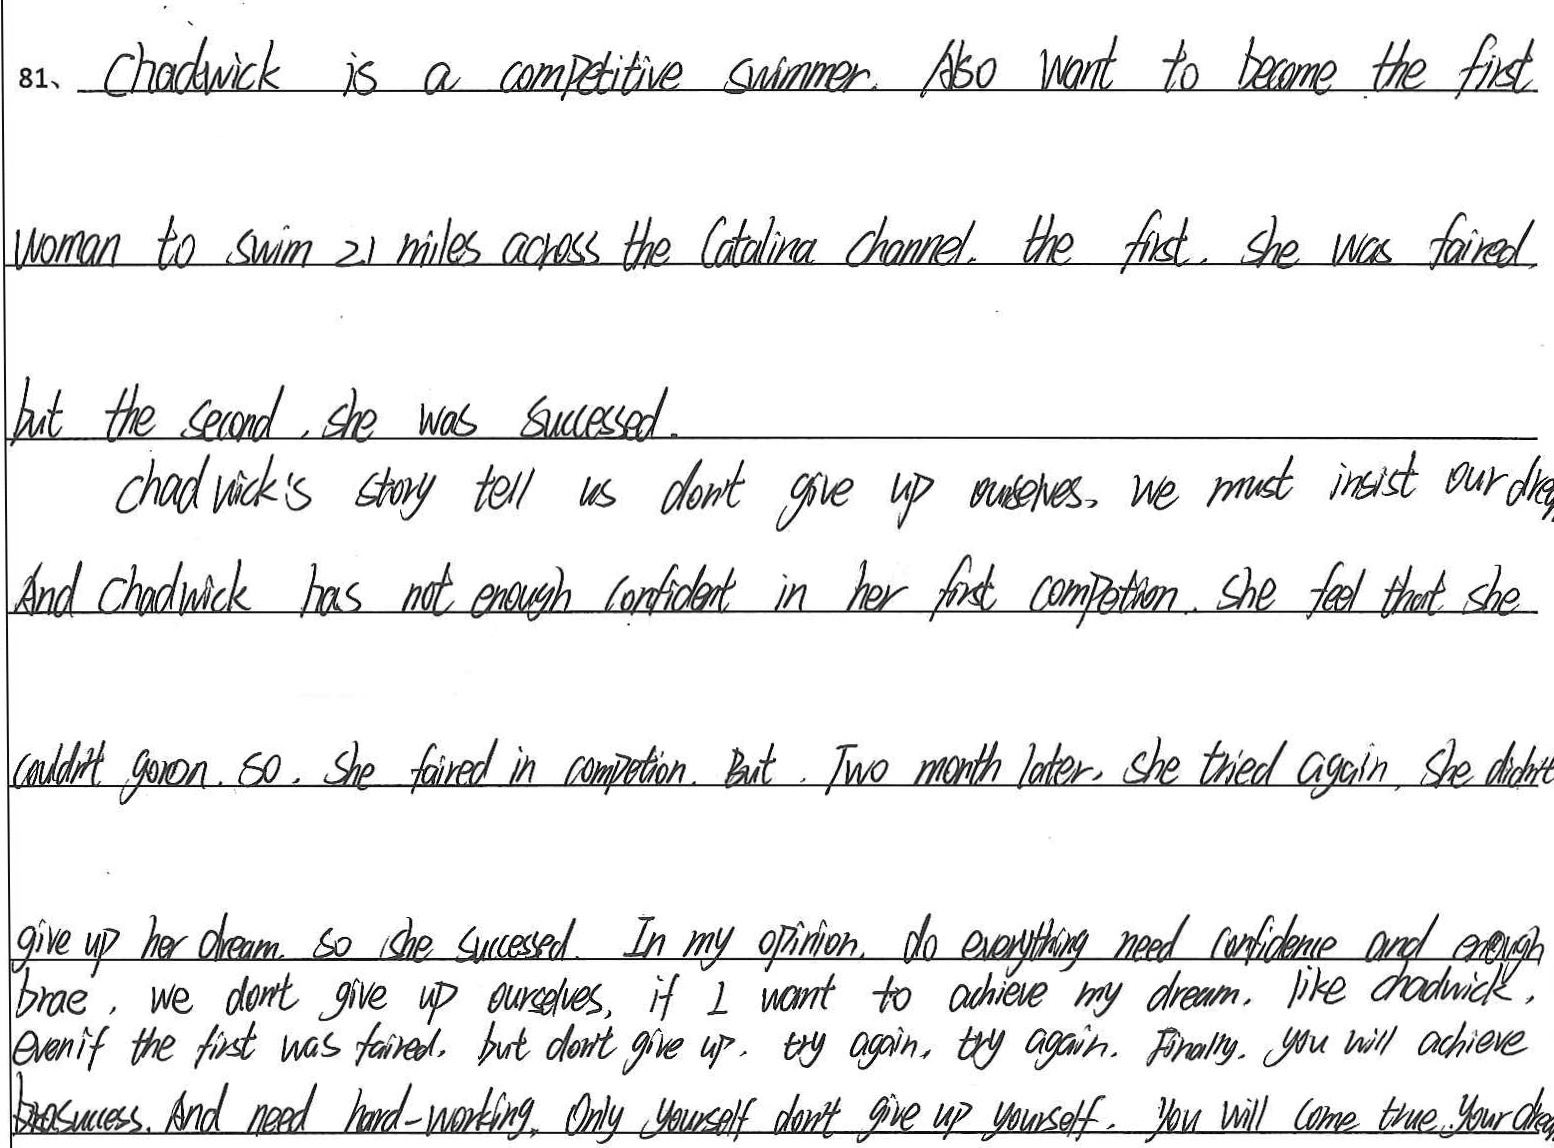 81、 Chadwick is a competitive swimmer. Also want to become the first
woman to swim 21 miles across the Catalina channel. the first. she was faired.
but the second, she was successed.
chadwick's story tell us don't give up ourselves, we must insist our
And Chadwick has not enough confident in her first competion. she feel that she
couldn't go on. so. she faired in competion. But. Two month later, she tried again, she didn't
give up her dream. so she successed. In my opinion, do everything need confidence and enough
brae, we don't give up ourselves, if I want to achieve my dream. like chadwick,
even if the first was faired. but don't give up. try again, try again. Finally. you will achieve
success. And need hard-working. Only yourself don't give up yourself. You will come true your